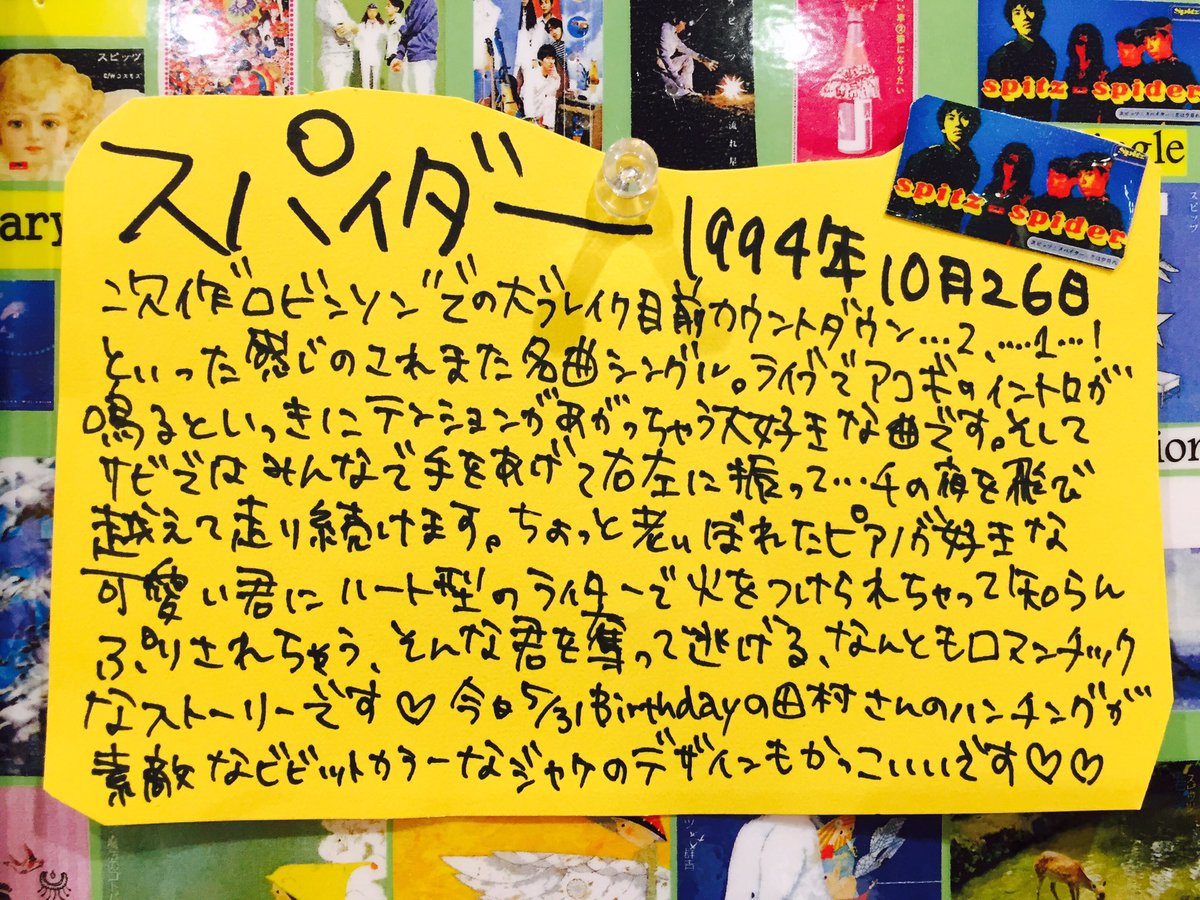 スピッツ
C/W コスモス
スピッツ
流れ星
い車②猫になりたい
Spitz
spitz - spider
スピッツ:スパイダー
Spitz
spitz - spider
スピッツ:スパイダー
ary
gle
ion
スパイダー 1994年10月26日
次作ロビンソンでの大ブレイク目前カウントダウン…2、……1…!
といった感じのこれまた名曲シングル。ライブでアコギのイントロが
鳴るといっきにテンションがあがっちゃう大好きな曲です。そして
サビではみんなで手をあげて右左に振って…千の夜を飛び
越えて走り続けます。ちょっと老いぼれたピアノが好きな
可愛い君にハート型のライターで火をつけられちゃって知らん
ぷりされちゃう、そんな君を奪って逃げる、なんともロマンチック
なストーリーです♡今日5/31Birthdayの田村さんのハンチングが
素敵なビビットカラーなジャケのデザインもかっこいいです♡♡